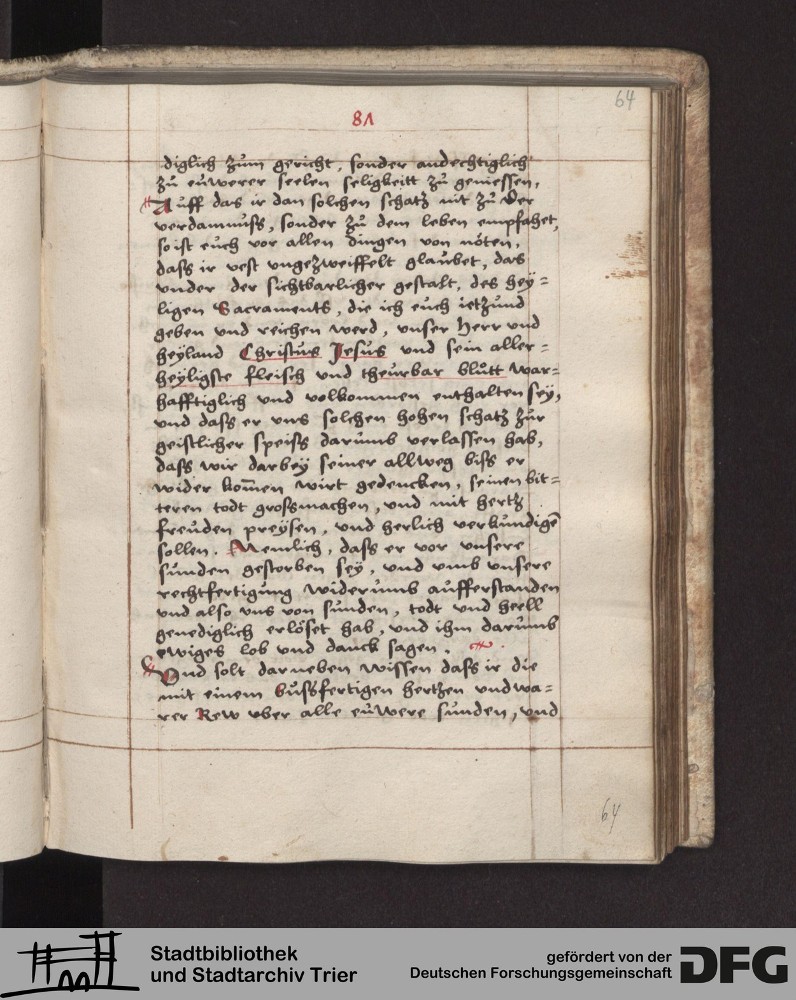 64
81
diglich zum gericht, sonder andechtiglich
zů eůwerer seelen seligkeitt zů geniessen,
Auff das ir dan solchen schatz nit zů der
verdamnuſs, sonder zů dem leben empfahet,
so ist euch vor allen dingen von nöten,
daſs ir vest ungezweiffelt glaubet, das
under der sichtbarlicher gestalt, des hey=
ligen Sacraments, die ich euch ietzund
geben und reichen werd, unser Herr und
heyland Christus Jesus und sein aller=
heyligste fleisch und theurbar blutt war=
hafftiglich und volkommen enthalten sey,
und daſs er uns solchen hohen schatz zur
geistlicher speiſs darumb verlassen hab,
daſs wir darbey seiner allweg biſs er
wider kom̄en wirt gedencken, seinen bit=
teren todt groſsmachen, und mit hertz
freuden preysen, und herlich verkundigē
sollen. Nemlich, daſs er vor unsere
sunden gestorben sey, und umb unsere
rechtfertigung widerumb aufferstanden
und also uns von sunden, todt und hell
genediglich erlöset hab, und ihm darumb
ewiges lob und danck sagen.
Und solt darneben wissen daſs ir die
mit einem buſsfertigen hertzen und wa=
rer Rew uber alle eůwere sunden, und
64
Stadtbibliothek
und Stadtarchiv Trier
gefördert von der
Deutschen Forschungsgemeinschaft
DFG